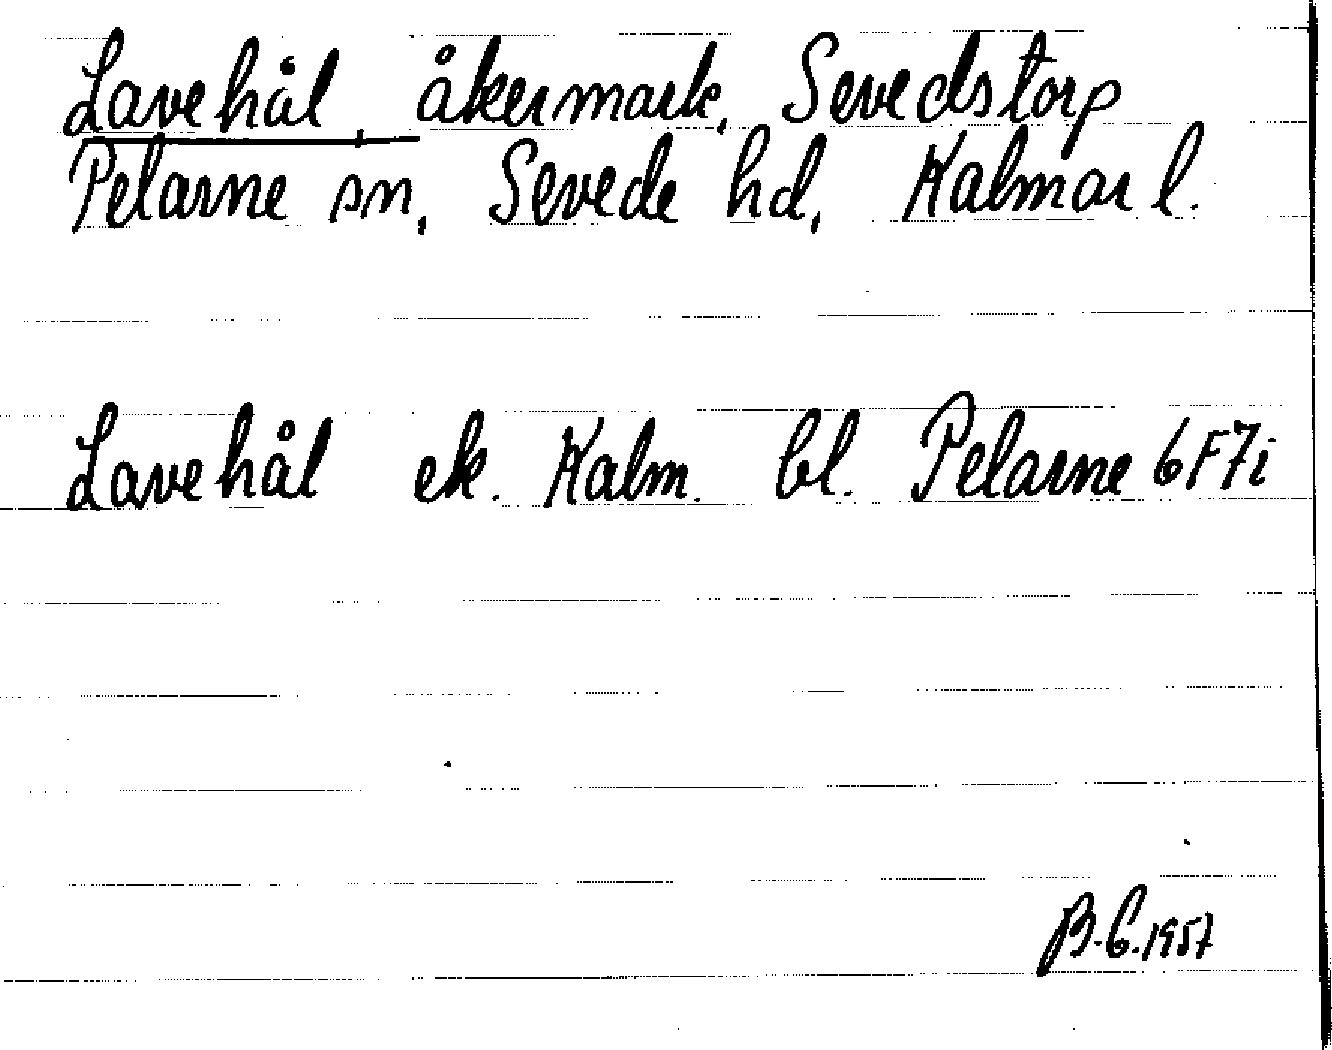 Lavehål, åkermark, Sevedstorp
Pelarne sn, Sevede hd, Kalmar l.
Lavehål ek. Kalm. bl. Pelarne 6F7i
B.E.1957